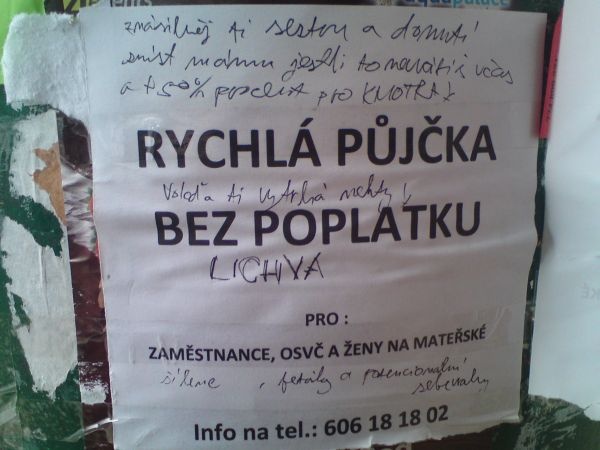 aquapalace
znásilněj ti sestru a donutí
sníst mámu jestli to nevrátíš včas
a +50% procent pro KMOTRA!
RYCHLÁ PŮJČKA
Voloďa ti vytrhá nehty!
BEZ POPLATKU
LICHVA
PRO :
ZAMĚSTNANCE, OSVČ A ŽENY NA MATEŘSKÉ
šílence, feťáky a potencionální
sebevrahy
Info na tel.: 606 18 18 02